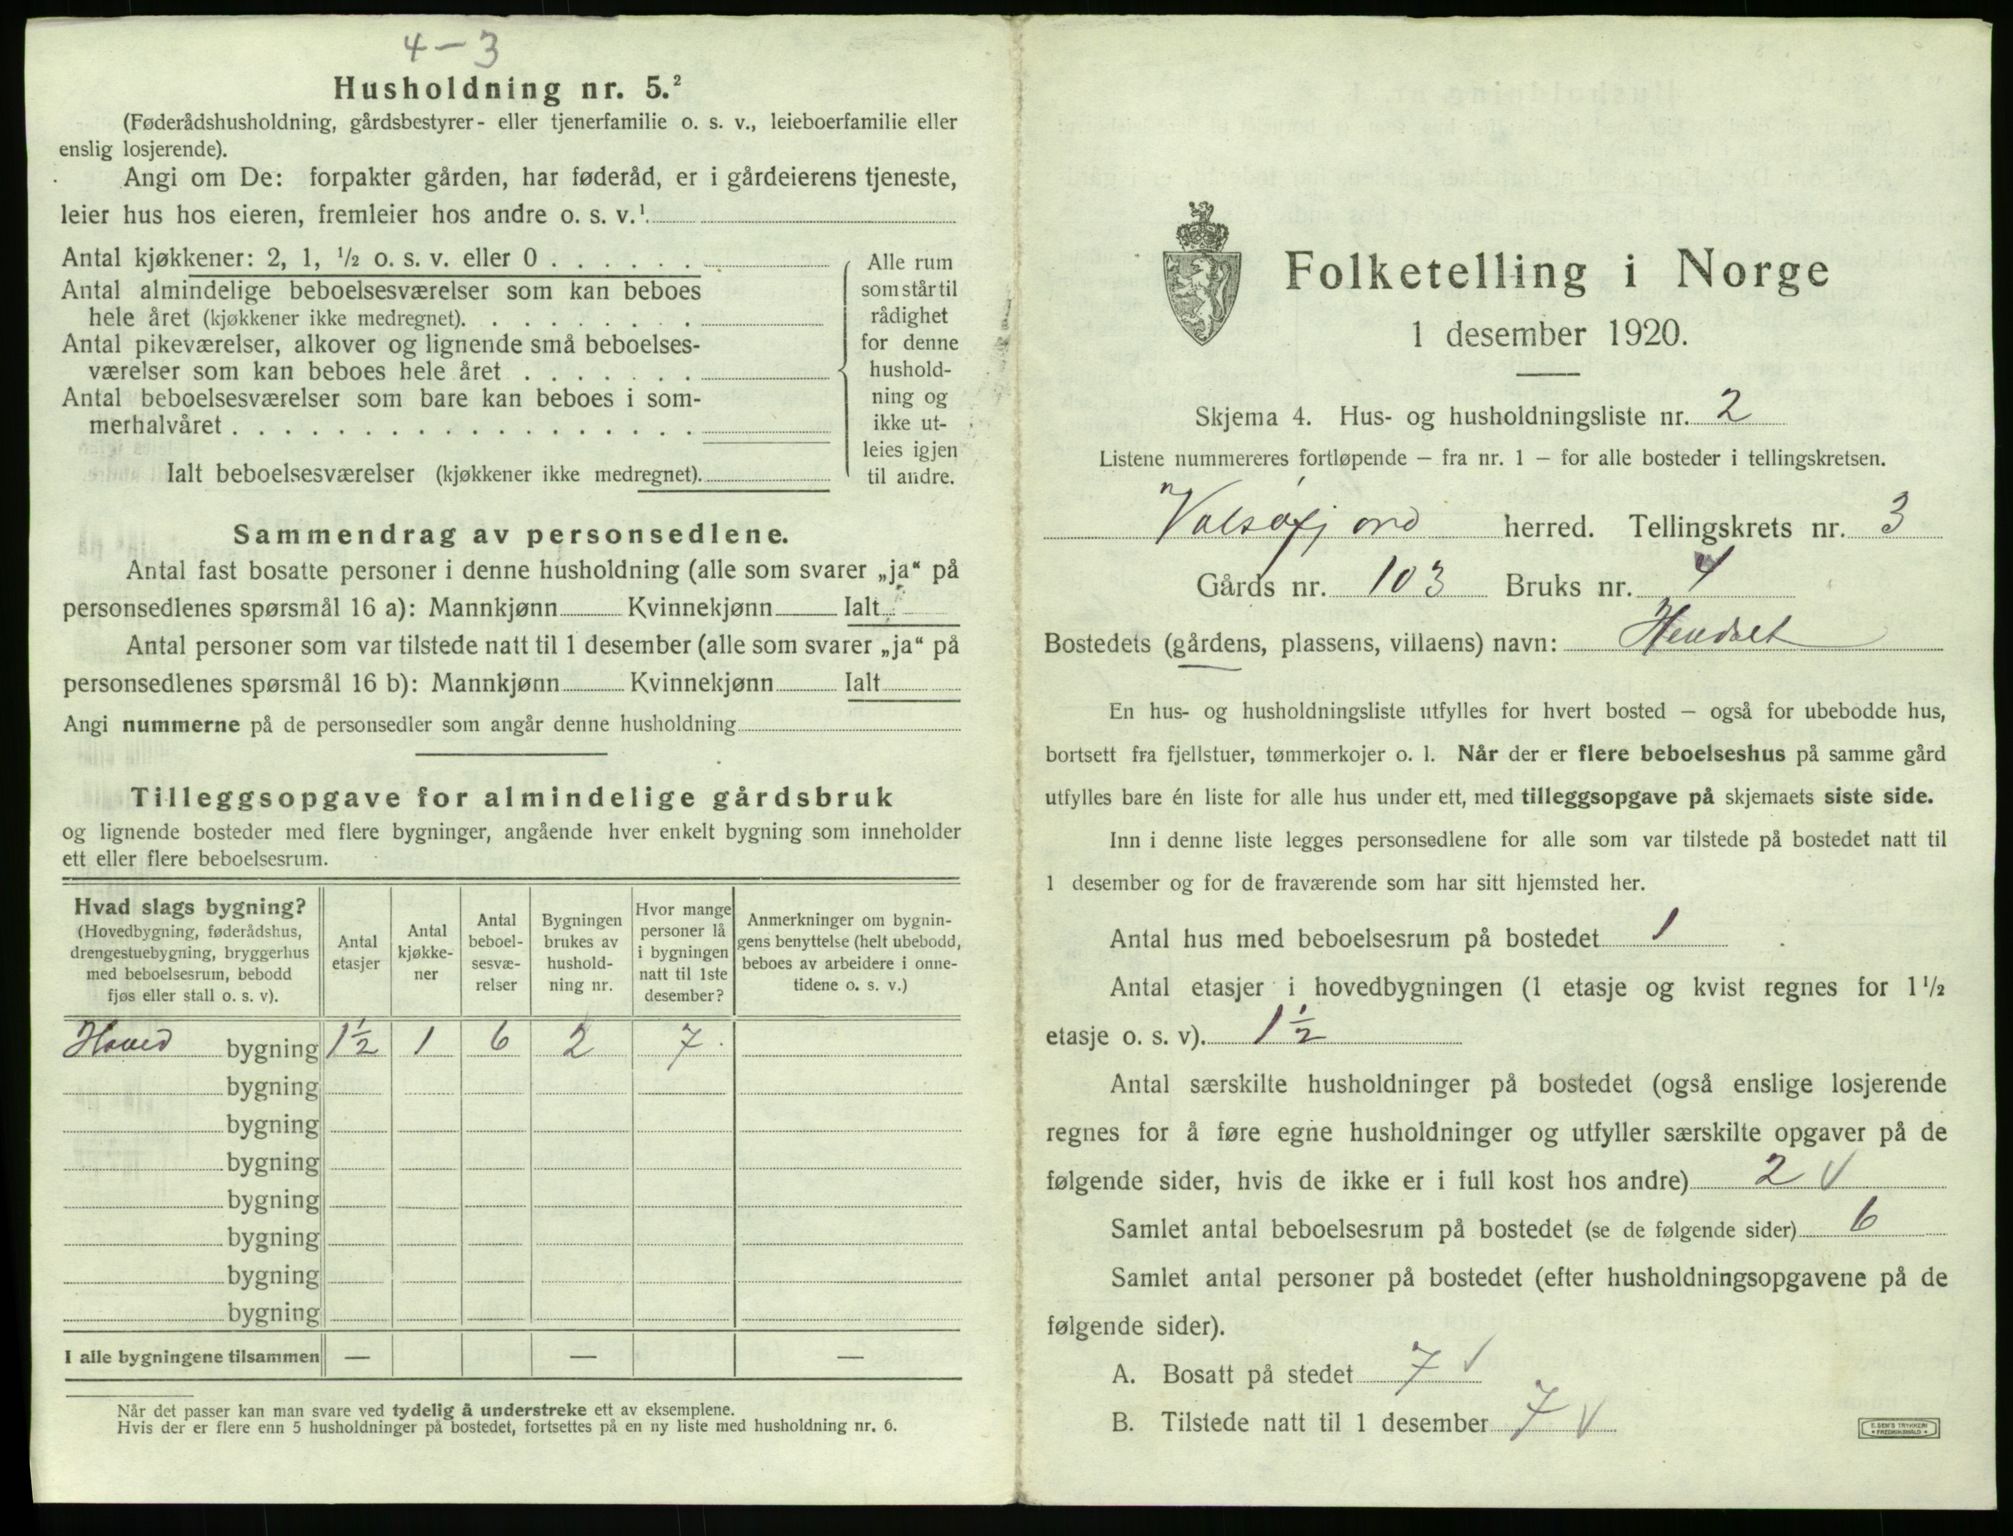 4-3
Husholdning nr. 5.²
(Føderådshusholdning, gårdsbestyrer- eller tjenerfamilie o. s. v., leieboerfamilie eller
enslig losjerende).
Angi om De: forpakter gården, har føderåd, er i gårdeierens tjeneste,
leier hus hos eieren, fremleier hos andre o. s. v.¹
Antal kjøkkener: 2, 1, ½ o. s. v. eller 0
Antal almindelige beboelsesværelser som kan beboes
hele året (kjøkkener ikke medregnet).
Antal pikeværelser, alkover og lignende små beboelses-
værelser som kan beboes hele året
Antal beboelsesværelser som bare kan beboes i som-
merhalvåret
Ialt beboelsesværelser (kjøkkener ikke medregnet).
Alle rum
som står til
rådighet
for denne
hushold-
ning og
ikke ut-
leies igjen
til andre.
Sammendrag av personsedlene.
Antal fast bosatte personer i denne husholdning (alle som svarer „ja“ på
personsedlenes spørsmål 16 a): Mannkjønn Kvinnekjønn Ialt
Antal personer som var tilstede natt til 1 desember (alle som svarer „ja“ på
personsedlenes spørsmål 16 b): Mannkjønn Kvinnekjønn Ialt
Angi nummerne på de personsedler som angår denne husholdning
Tilleggsopgave for almindelige gårdsbruk
og lignende bosteder med flere bygninger, angående hver enkelt bygning som inneholder
ett eller flere beboelsesrum.
Hvad slags bygning?
(Hovedbygning, føderådshus,
drengestuebygning, bryggerhus
med beboelsesrum, bebodd
fjøs eller stall o. s. v).
Antal
etasjer
Antal
kjøkke-
ner
Antal
beboel-
sesvæ-
relser
Bygningen
brukes av
hushold-
ning nr.
Hvor mange
personer lå
i bygningen
natt til 1ste
desember?
Anmerkninger om bygnin-
gens benyttelse (helt ubebodd,
beboes av arbeidere i onne-
tidene o. s. v.)
Hoved bygning 1½ 1 6 2 7
bygning
bygning
bygning
bygning
bygning
bygning
bygning
I alle bygningene tilsammen — — —
Når det passer kan man svare ved tydelig å understreke ett av eksemplene.
Hvis der er flere enn 5 husholdninger på bostedet, fortsettes på en ny liste med husholdning nr. 6.
Folketelling i Norge
1 desember 1920.
Skjema 4. Hus- og husholdningsliste nr. 2
Listene nummereres fortløpende — fra nr. 1 — for alle bosteder i tellingskretsen.
Valsøfjord herred. Tellingskrets nr. 3
Gårds nr. 103 Bruks nr. 4
Bostedets (gårdens, plassens, villaens) navn: Hendset
En hus- og husholdningsliste utfylles for hvert bosted — også for ubebodde hus,
bortsett fra fjellstuer, tømmerkojer o. l. Når der er flere beboelseshus på samme gård
utfylles bare én liste for alle hus under ett, med tilleggsopgave på skjemaets siste side.
Inn i denne liste legges personsedlene for alle som var tilstede på bostedet natt til
1 desember og for de fraværende som har sitt hjemsted her.
Antal hus med beboelsesrum på bostedet 1
Antal etasjer i hovedbygningen (1 etasje og kvist regnes for 1½
etasje o. s. v). 1½
Antal særskilte husholdninger på bostedet (også enslige losjerende
regnes for å føre egne husholdninger og utfyller særskilte opgaver på de
følgende sider, hvis de ikke er i full kost hos andre) 2 √
Samlet antal beboelsesrum på bostedet (se de følgende sider) 6
Samlet antal personer på bostedet (efter husholdningsopgavene på de
følgende sider).
A. Bosatt på stedet 7 √
B. Tilstede natt til 1 desember 7 √